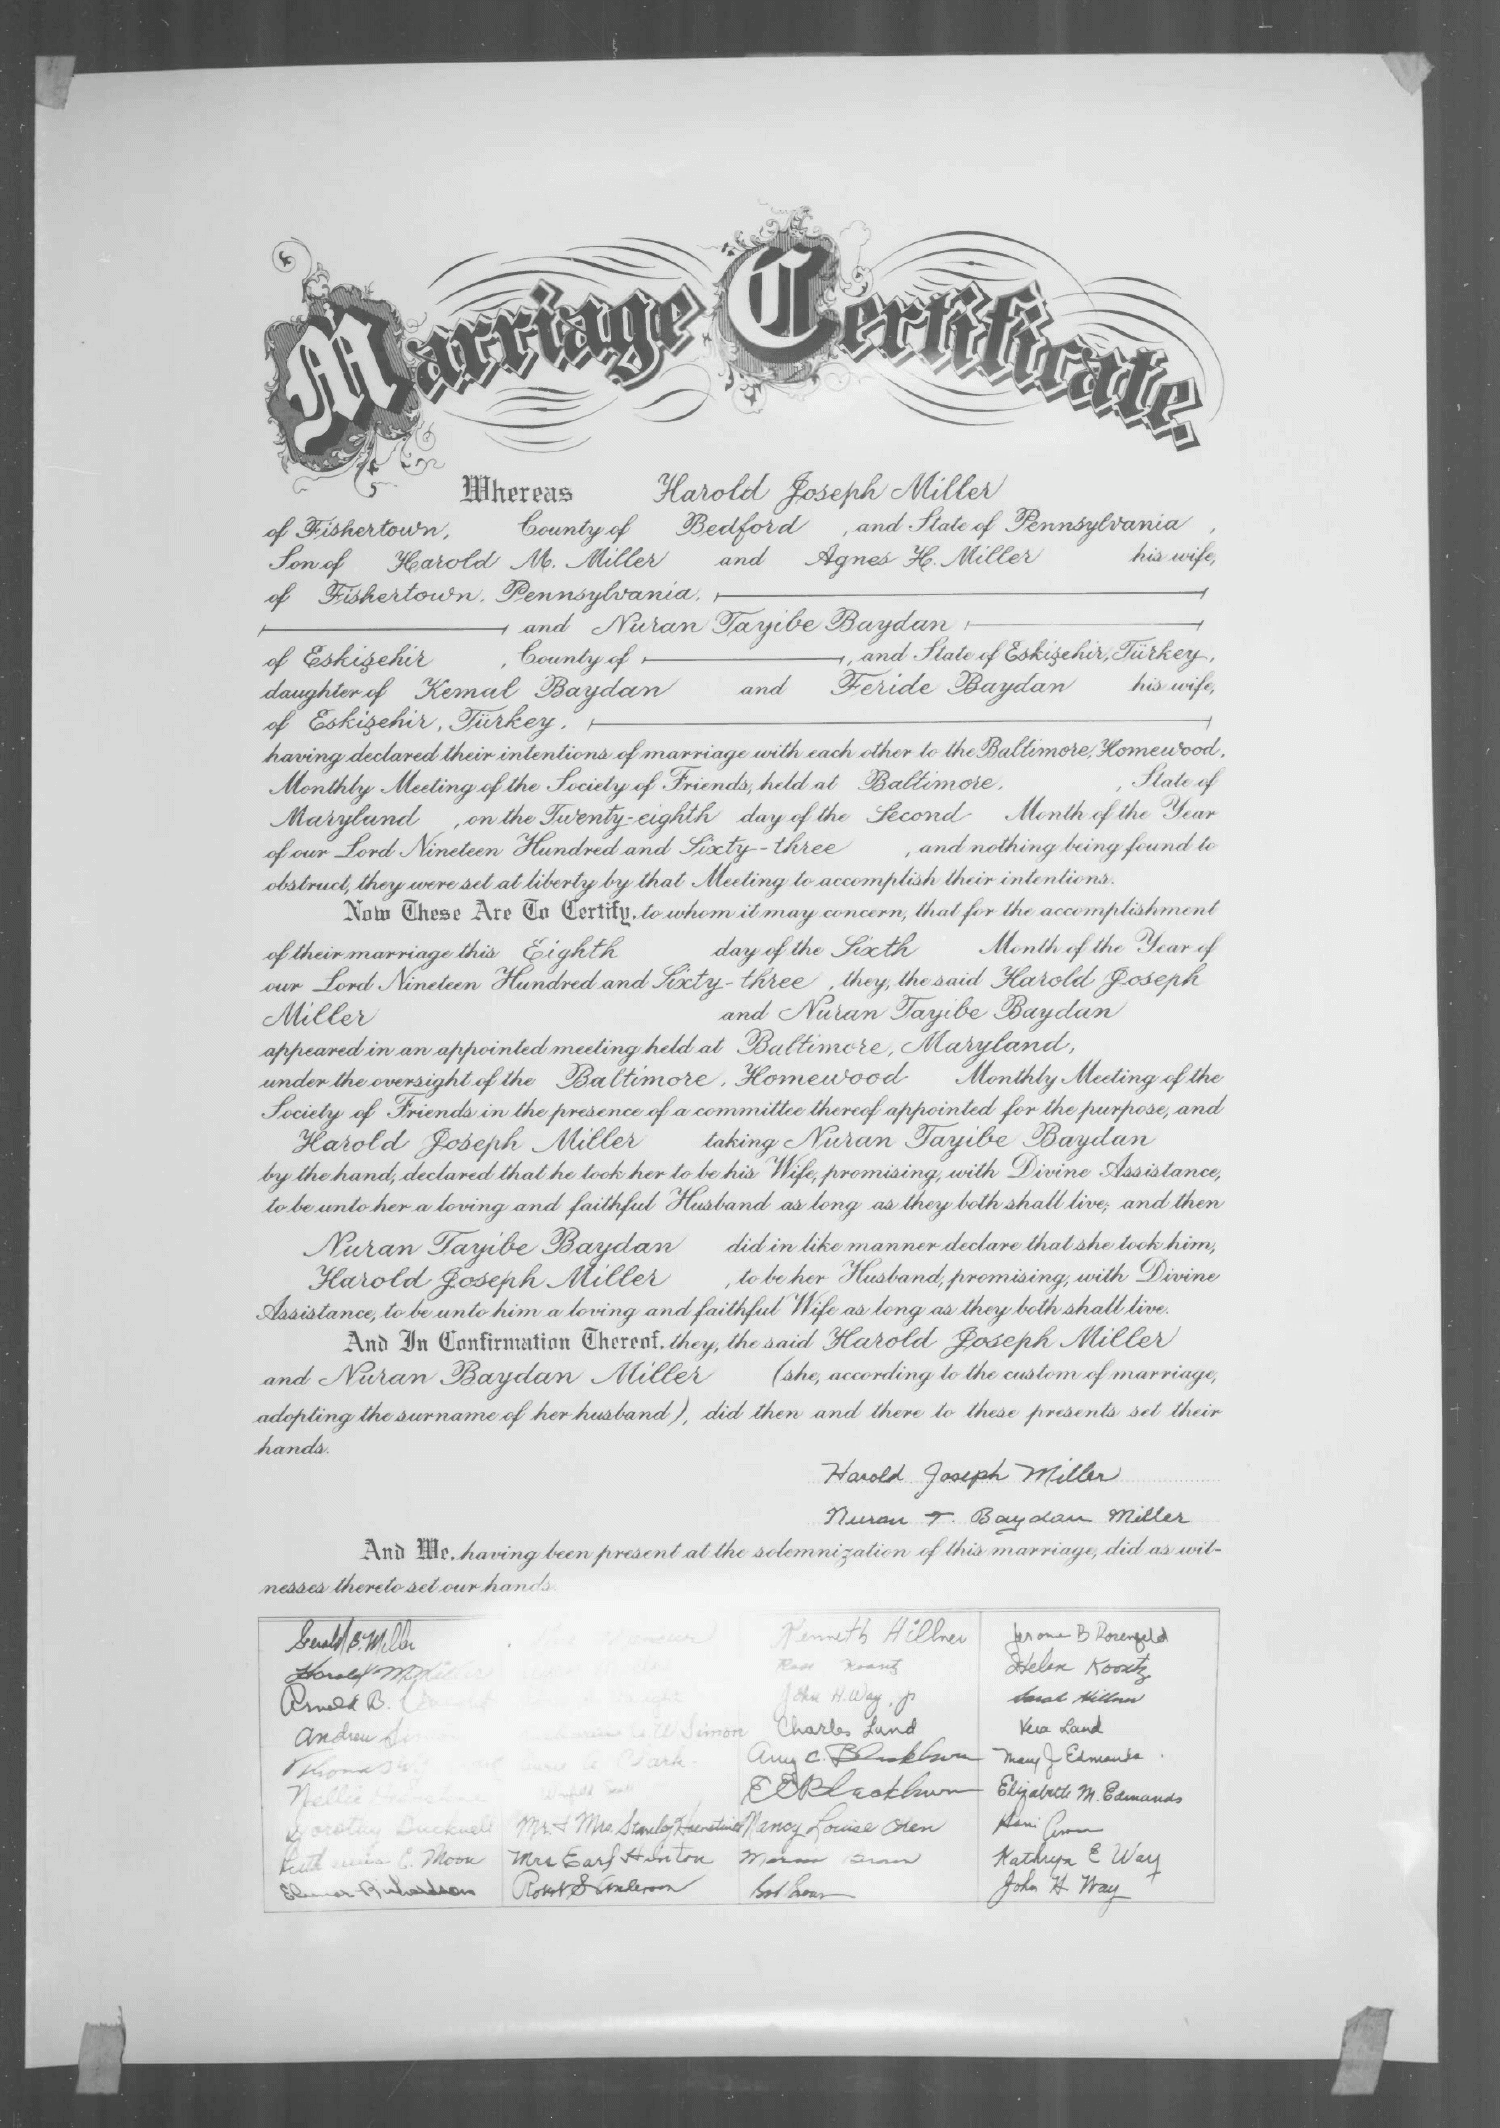 Marriage Certificate.
Whereas Harold Joseph Miller
of Fishertown, County of Bedford, and State of Pennsylvania,
Son of Harold M. Miller and Agnes H. Miller his wife,
of Fishertown, Pennsylvania,
and Nuran Tayibe Baydan
of Eskişehir, County of , and State of Eskişehir, Türkey,
daughter of Kemal Baydan and Feride Baydan his wife,
of Eskişehir, Türkey,
having declared their intentions of marriage with each other to the Baltimore, Homewood,
Monthly Meeting of the Society of Friends, held at Baltimore, , State of
Maryland, on the Twenty-eighth day of the Second Month of the Year
of our Lord Nineteen Hundred and Sixty-three, and nothing being found to
obstruct, they were set at liberty by that Meeting to accomplish their intentions.
Now These Are To Certify, to whom it may concern, that for the accomplishment
of their marriage this Eighth day of the Sixth Month of the Year of
our Lord Nineteen Hundred and Sixty-three, they, the said Harold Joseph
Miller and Nuran Tayibe Baydan
appeared in an appointed meeting held at Baltimore, Maryland,
under the oversight of the Baltimore, Homewood Monthly Meeting of the
Society of Friends in the presence of a committee thereof appointed for the purpose, and
Harold Joseph Miller taking Nuran Tayibe Baydan
by the hand, declared that he took her to be his Wife, promising, with Divine Assistance,
to be unto her a loving and faithful Husband as long as they both shall live; and then
Nuran Tayibe Baydan did in like manner declare that she took him,
Harold Joseph Miller, to be her Husband, promising, with Divine
Assistance, to be unto him a loving and faithful Wife as long as they both shall live.
And In Confirmation Thereof, they, the said Harold Joseph Miller
and Nuran Baydan Miller (she, according to the custom of marriage,
adopting the surname of her husband), did then and there to these presents set their
hands.
Harold Joseph Miller
Nuran T. Baydan Miller
And We, having been present at the solemnization of this marriage, did as wit-
nesses thereto set our hands.
Gerald B. Miller Kenneth Hillner Jerome B Rosenfeld
Harold M. Miller Ross Koontz Helen Koontz
Arnold B. John H. Way, jr Sarah Hillner
Andrew W Simon Charles Lund Vera Lund
Thomas Clark Amy C. Blackburn Mary J Edmunds
Nellie E E Blackburn Elizabeth M. Edmunds
Dorothy Bucknell Mr. & Mrs. Stanley Nancy Louise Oren
C. Moon Mrs Earl Hinton Kathryn E Way
Elinor Richardson Robt S Anderson John H Way